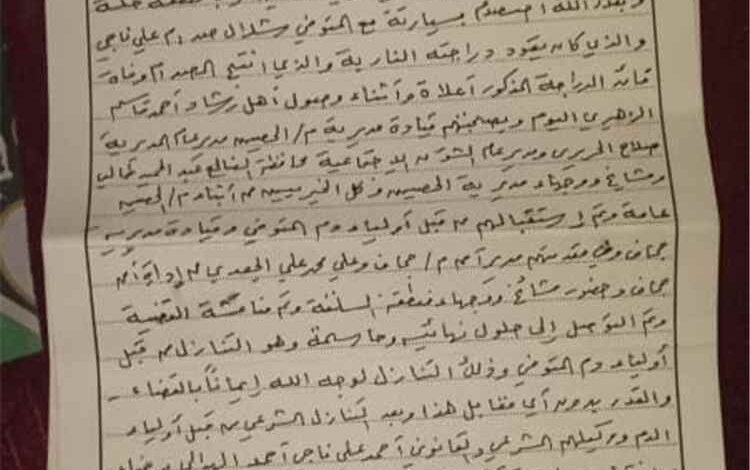 وبقدر الله اصطدم بسيارته مع المتوفي شلال صدام علي ناجي
والذي كان يقود دراجته النارية والذي انتج الصدام وفاة
قائد الدراجة المذكور أعلاة وأثناء وصول أهل رشاد أحمد قاسم
الزهيري اليوم وبصحبتهم قيادة مديرية م/الحصين مدير عام المديرية
صلاح الحريري ومدير عام الشؤون الاجتماعية محافظة الضالع عبد الحميد
ومشائخ ووجهاء مديرية الحصين وكل الخيريين من أبناء م/الحصين
عامة وتم إستقبالهم من قبل أولياء دم المتوفي وقيادة مديرية
جحاف وفي مقدمتهم مدير أمن م/جحاف وعلي محمد علي من إدارة أمن
جحاف وحضور مشائخ ووجهاء منطقة السلقة وتم مناقشة القضية
وتم التوصل إلى حلول نهائية وحاسمة وهو التنازل من قبل
أولياء دم المتوفي وذلك التنازل لوجه الله إيماناً بالقضاء
والقدر بدون أي مقابل هذا وبعد التنازل الشرعي من قبل أولياء
الدم ووكيلهم الشرعي والقانوني أحمد علي ناجي أحمد